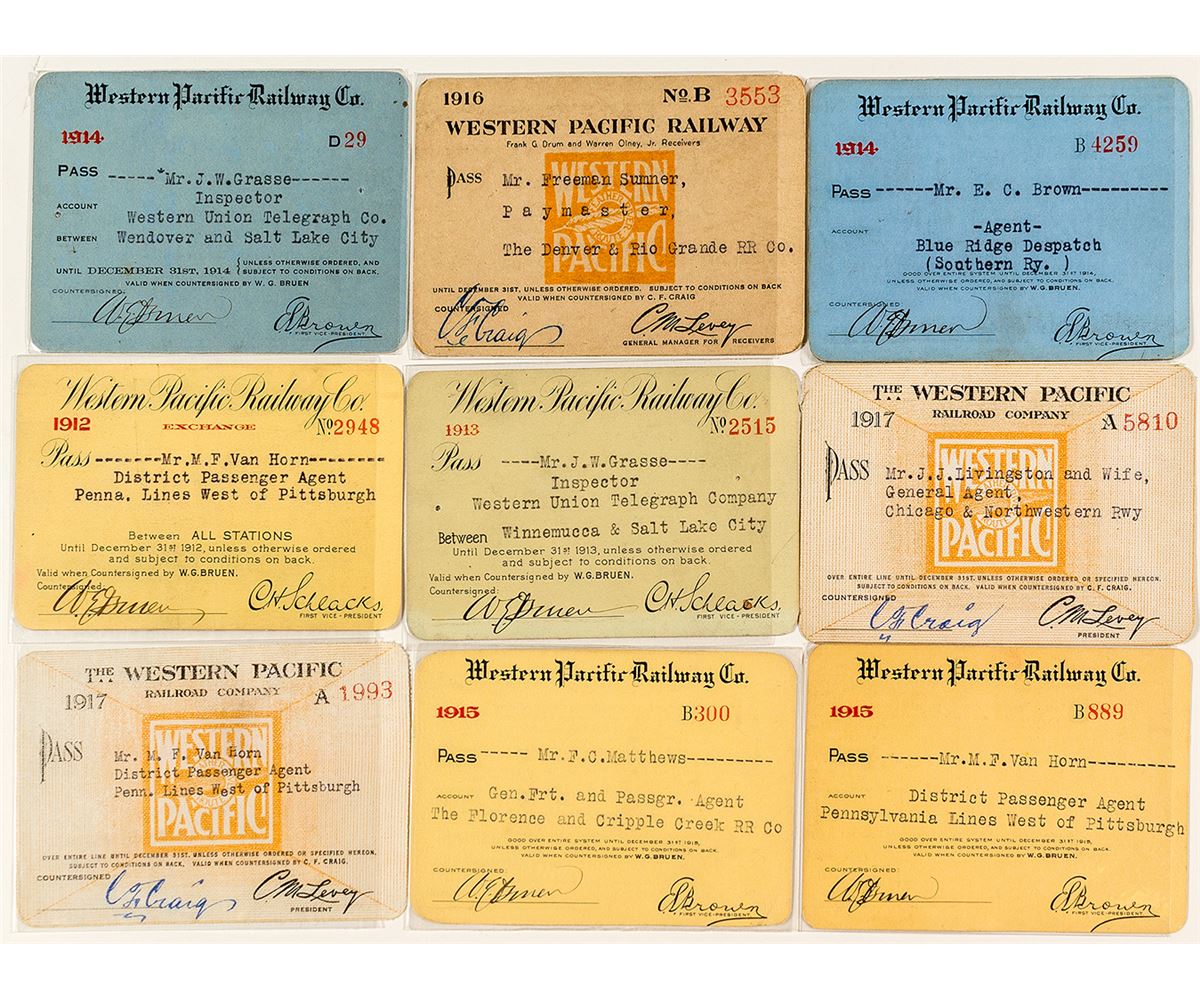 Western Pacific Railway Co.
1914 D 29
PASS -----*Mr.J.W.Grasse------
Inspector
ACCOUNT Western Union Telegraph Co.
BETWEEN Wendover and Salt Lake City
UNTIL DECEMBER 31ST, 1914 { UNLESS OTHERWISE ORDERED, AND
SUBJECT TO CONDITIONS ON BACK.
VALID WHEN COUNTERSIGNED BY W. G. BRUEN
COUNTERSIGNED:
W.G.Bruen E.L.Brown
FIRST VICE-PRESIDENT
1916 No. B 3553
WESTERN PACIFIC RAILWAY
Frank G. Drum and Warren Olney, Jr. Receivers
WESTERN
PACIFIC
FEATHER RIVER ROUTE
PASS Mr. Freeman Sumner,
Paymaster,
The Denver & Rio Grande RR Co.
UNTIL DECEMBER 31ST, UNLESS OTHERWISE ORDERED. SUBJECT TO CONDITIONS ON BACK
VALID WHEN COUNTERSIGNED BY C. F. CRAIG
COUNTERSIGNED
C F Craig C.M.Levey
GENERAL MANAGER FOR RECEIVERS
Western Pacific Railway Co.
1914 B 4259
PASS ------Mr. E. C. Brown---------
ACCOUNT -Agent-
Blue Ridge Despatch
(Southern Ry. )
GOOD OVER ENTIRE SYSTEM UNTIL DECEMBER 31ST 1914,
UNLESS OTHERWISE ORDERED, AND SUBJECT TO CONDITIONS ON BACK.
VALID WHEN COUNTERSIGNED BY W.G. BRUEN.
COUNTERSIGNED
W.G.Bruen E.L.Brown
FIRST VICE-PRESIDENT.
Western Pacific Railway Co.
1912 EXCHANGE No. 2948
Pass --------Mr.M.F.Van Horn--------
District Passenger Agent
Penna. Lines West of Pittsburgh
Between ALL STATIONS
Until December 31st 1912, unless otherwise ordered
and subject to conditions on back.
Valid when Countersigned by W.G. BRUEN.
Countersigned:
W.G.Bruen C.H.Schlacks,
FIRST VICE-PRESIDENT
Western Pacific Railway Co.
1913 No. 2515
Pass ----Mr.J.W.Grasse----
Inspector
Western Union Telegraph Company
Between Winnemucca & Salt Lake City
Until December 31st 1913, unless otherwise ordered
and subject to conditions on back.
Valid when Countersigned by W.G. BRUEN.
Countersigned:
W.G.Bruen C.H.Schlacks,
FIRST VICE-PRESIDENT
THE WESTERN PACIFIC
RAILROAD COMPANY
1917 A 5810
WESTERN
PACIFIC
PASS Mr.J.J.Livingston and Wife,
General Agent,
Chicago & Northwestern Rwy
OVER ENTIRE LINE UNTIL DECEMBER 31ST. UNLESS OTHERWISE ORDERED OR SPECIFIED HEREON.
SUBJECT TO CONDITIONS ON BACK. VALID WHEN COUNTERSIGNED BY C. F. CRAIG.
COUNTERSIGNED
C F Craig C.M.Levey
PRESIDENT
THE WESTERN PACIFIC
RAILROAD COMPANY
1917 A 1993
WESTERN
PACIFIC
PASS Mr. M. F. Van Horn
District Passenger Agent
Penn. Lines West of Pittsburgh
OVER ENTIRE LINE UNTIL DECEMBER 31ST. UNLESS OTHERWISE ORDERED OR SPECIFIED HEREON.
SUBJECT TO CONDITIONS ON BACK. VALID WHEN COUNTERSIGNED BY C. F. CRAIG.
COUNTERSIGNED
C F Craig C.M.Levey
PRESIDENT
Western Pacific Railway Co.
1915 B300
PASS ----- Mr.F.C.Matthews---------
ACCOUNT Gen.Frt. and Passgr. Agent
The Florence and Cripple Creek RR Co
GOOD OVER ENTIRE SYSTEM UNTIL DECEMBER 31ST 1915,
UNLESS OTHERWISE ORDERED, AND SUBJECT TO CONDITIONS ON BACK.
VALID WHEN COUNTERSIGNED BY W.G. BRUEN.
COUNTERSIGNED:
W.G.Bruen E.L.Brown
FIRST VICE-PRESIDENT.
Western Pacific Railway Co.
1915 B889
PASS ------Mr.M.F.Van Horn---------
ACCOUNT District Passenger Agent
Pennsylvania Lines West of Pittsburgh
GOOD OVER ENTIRE SYSTEM UNTIL DECEMBER 31ST 1915,
UNLESS OTHERWISE ORDERED, AND SUBJECT TO CONDITIONS ON BACK.
VALID WHEN COUNTERSIGNED BY W.G. BRUEN.
COUNTERSIGNED:
W.G.Bruen E.L.Brown
FIRST VICE-PRESIDENT.